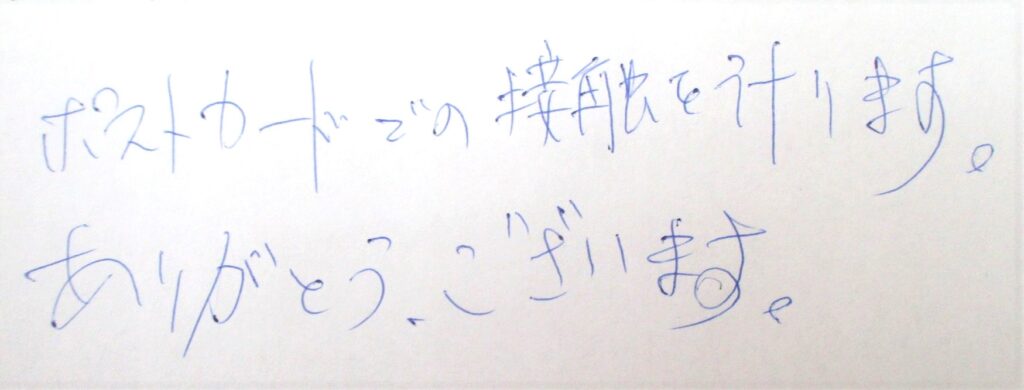 ポストカードでの接触を計ります。
ありがとう、ございます。